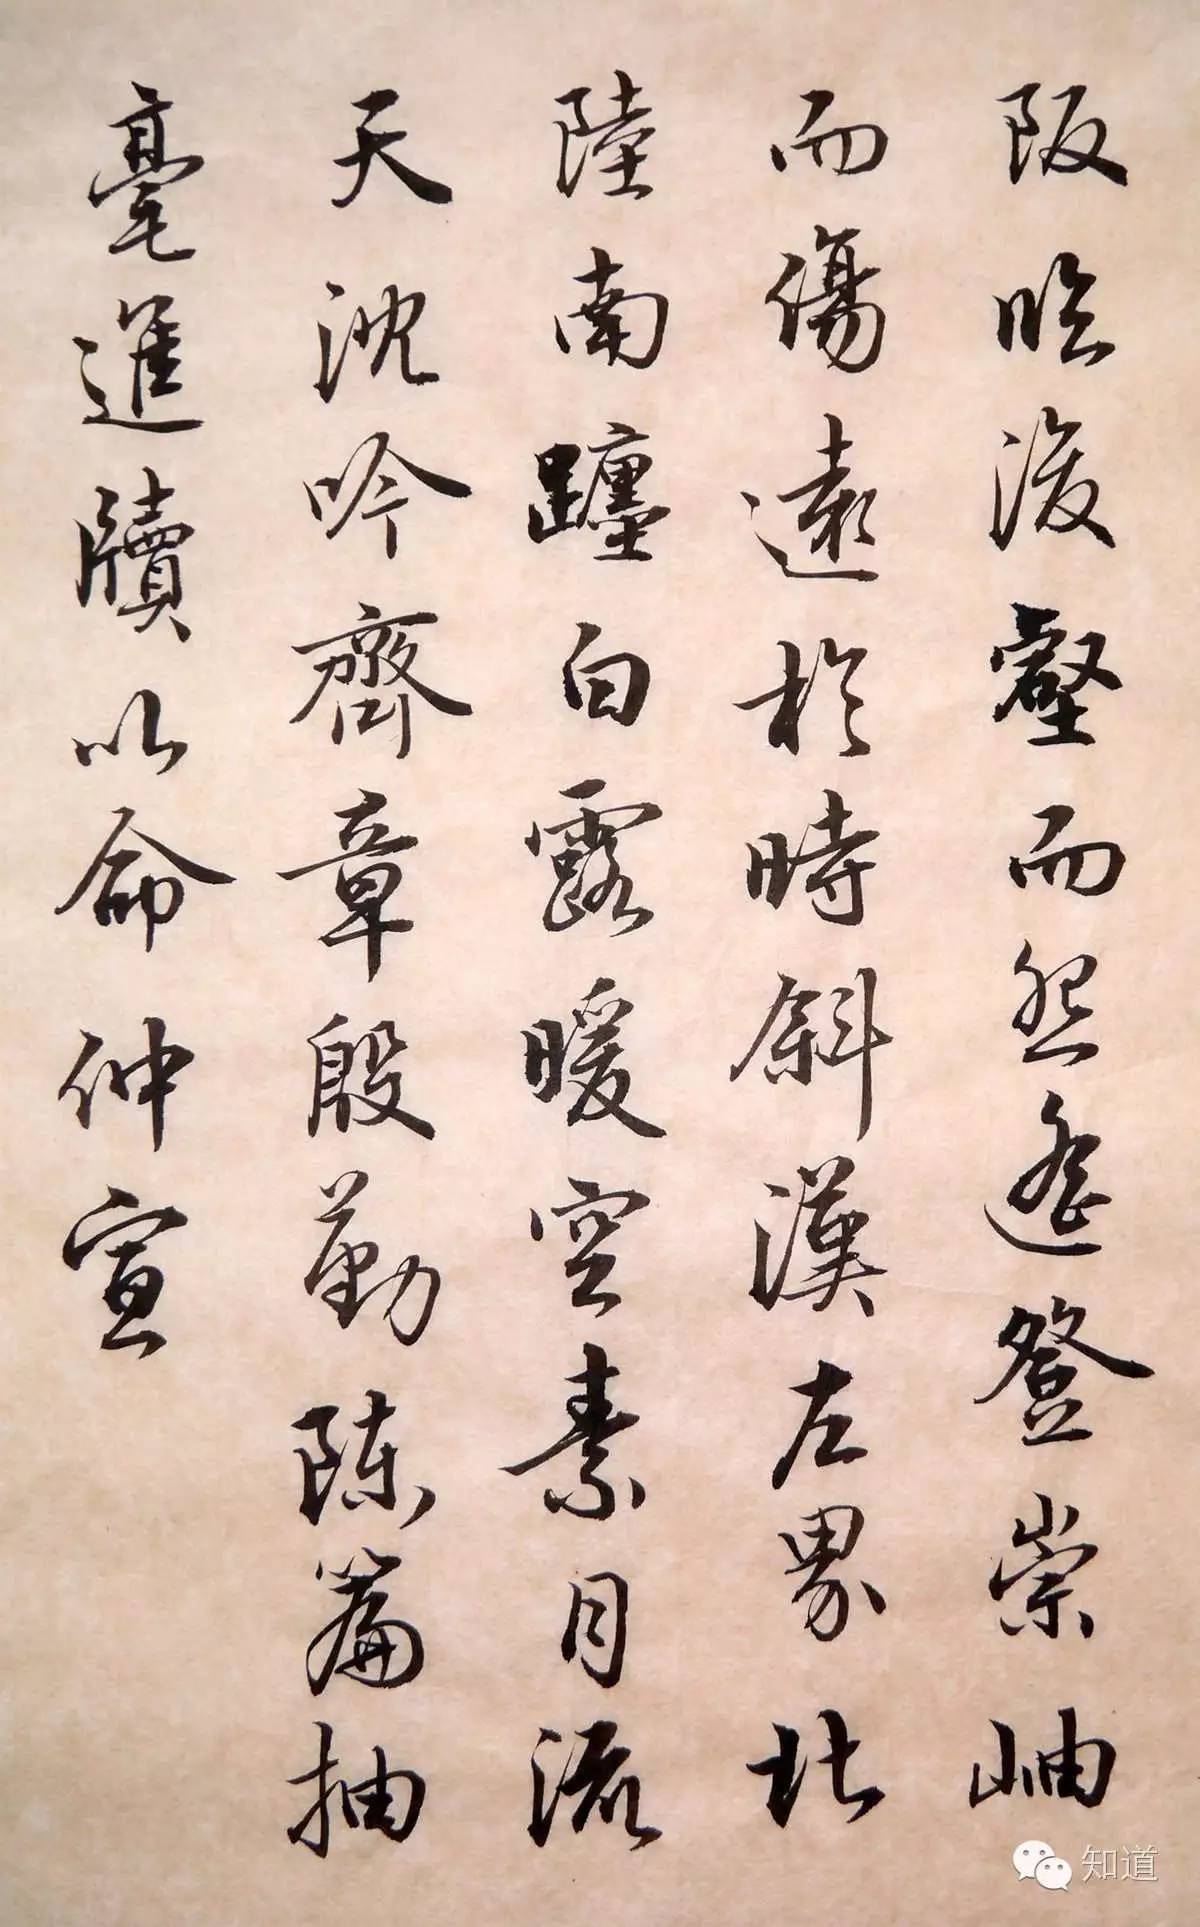 阪臨浚壑而怨遙登崇岫
而傷遠於時斜漢左界北
陸南躔白露暖空素月流
天沈吟齊章殷勤陳篇抽
毫進牘以命仲宣
知道